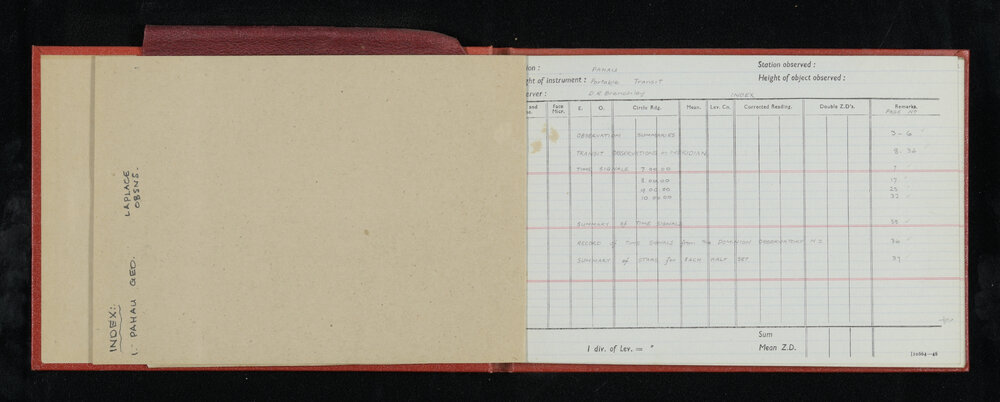 INDEX:
1. PAHAU GEO. LAPLACE OBSNS.
ion : PAHAU Station observed :
ght of instrument : Portable Transit Height of object observed :
erver : D R Branchley INDEX
and Face Micr. E. O. Circle Rdg. Mean. Lev. Co. Corrected Reading. Double Z.D's. Remarks.
PAGE NO
OBSERVATION SUMMARIES 3 - 6
TRANSIT OBSERVATIONS in MERIDIAN 8.
TIME SIGNALS 7 00 00 7
8 00 00 17
9 00 00 25
10 00 00 32
SUMMARY of TIME SIGNALS 35
RECORD of TIME SIGNALS from the DOMINION OBSERVATORY N Z 36
SUMMARY of STARS for EACH HALF SET 37
Sum
1 div. of Lev. = " Mean Z.D.